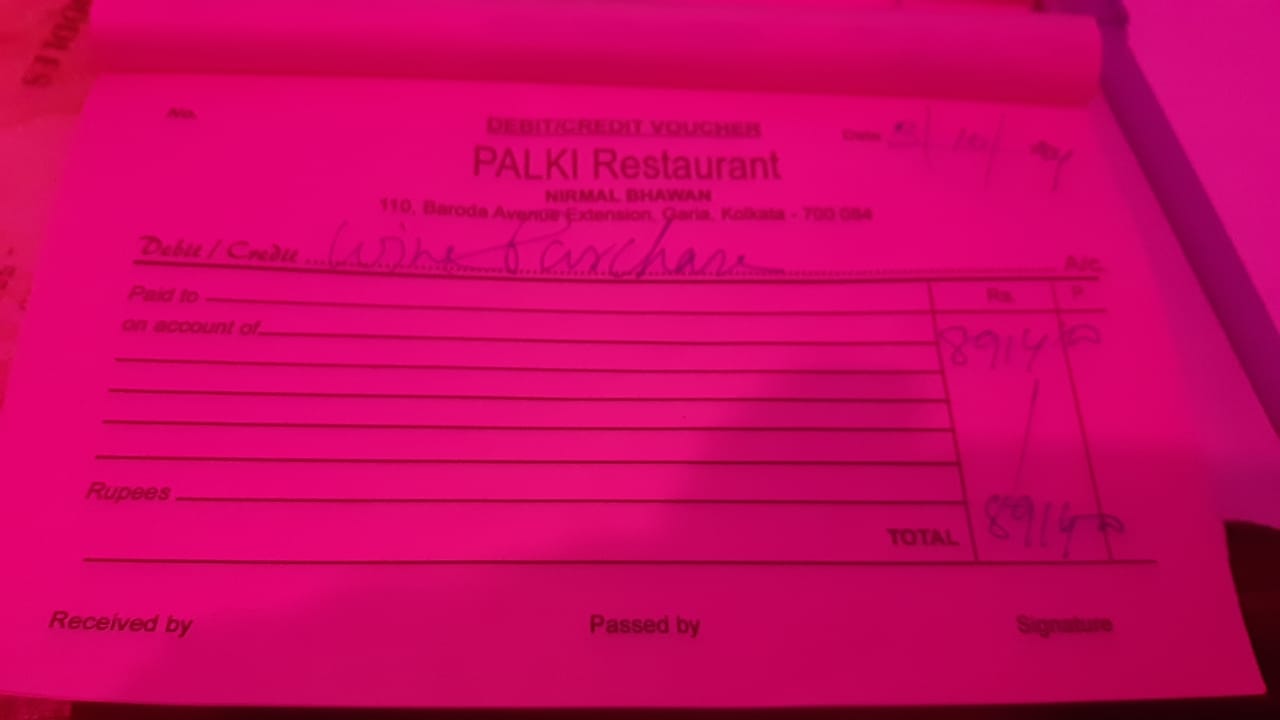 No.
DEBIT/CREDIT VOUCHER
Date 3/10/
PALKI Restaurant
NIRMAL BHAWAN
110, Baroda Avenue Extension, Garia, Kolkata - 700 084
Debit / Credit Wine Purchase A/c.
Paid to Rs. P.
on account of 8914 00
Rupees
TOTAL 8914 00
Received by Passed by Signature